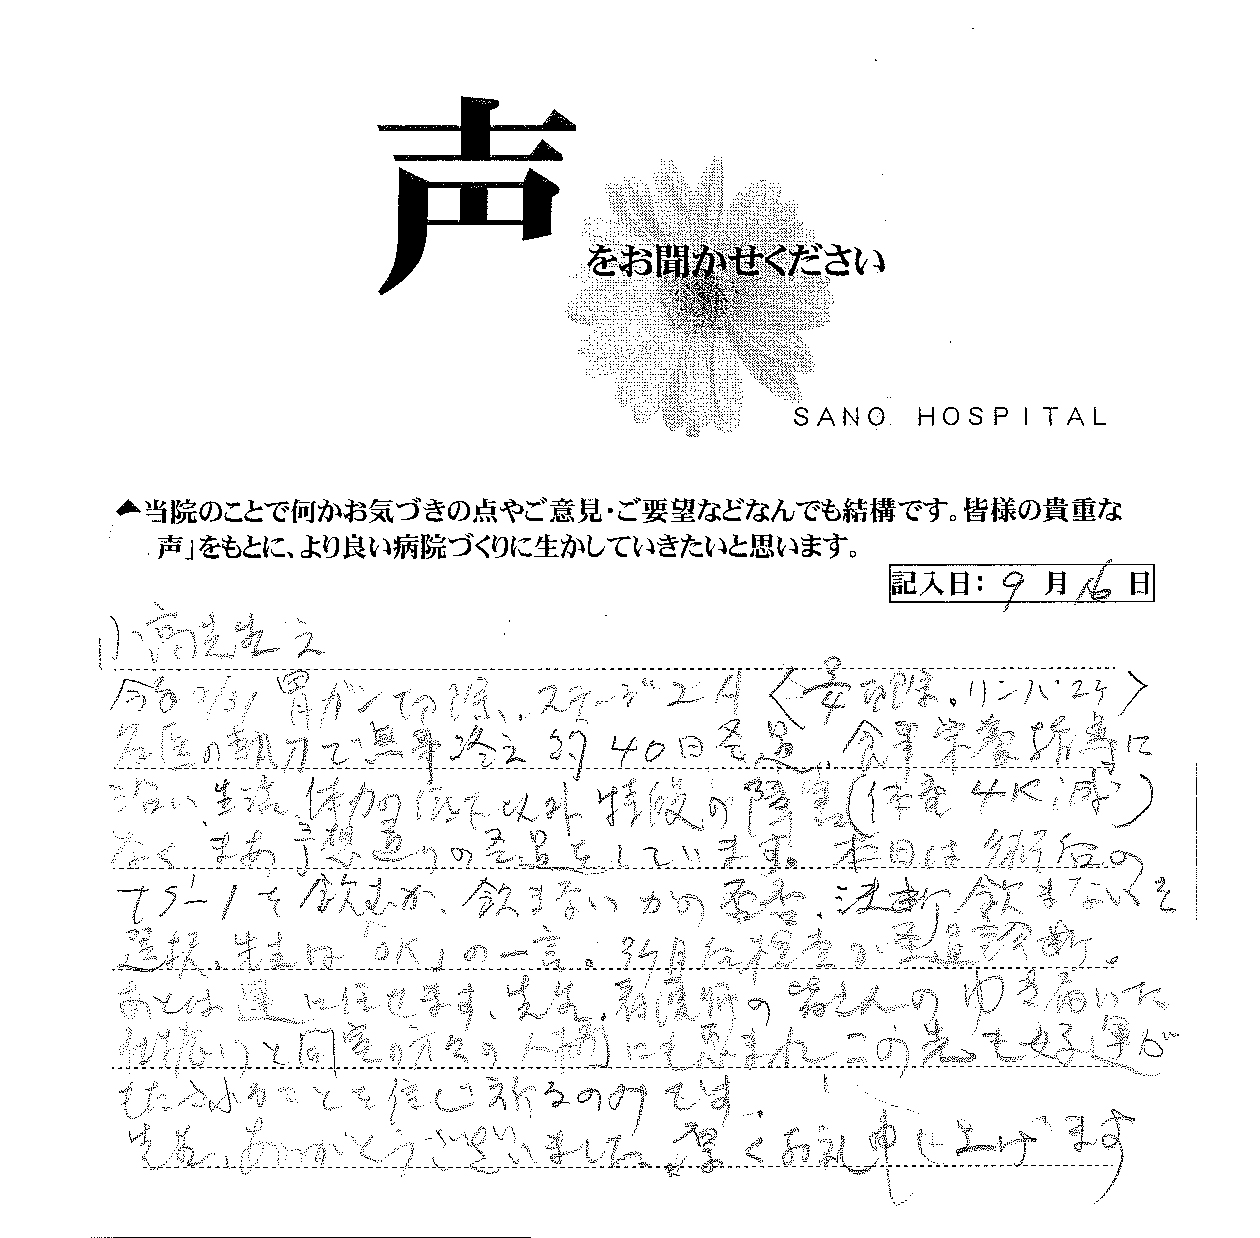 声
をお聞かせください
SANO HOSPITAL
当院のことで何かお気づきの点やご意見・ご要望などなんでも結構です。皆様の貴重な
声」をもとに、より良い病院づくりに生かしていきたいと思います。
記入日: 9月16日
小高先生え
胃ガン切除、ステージ2A〈全部除。リンパ〉
名医の執刀で無事終え約40日を過、食事栄養指導に
沿い生活、体力の低下以外特段の障害(体重4K減)
なく まあ予想通りの 過をしています。本日は術后の
TS-1を飲むか、飲まないかの 決断、飲まないを
選択。先生は「OK」の一言。3ヶ月后検査が 診断。
あとは運に任せます、先生、看護師の皆さんのゆき届いた
と同室の方々の人柄にも恵まれ この先も好運が
もたらふれことを信じ祈るのみです。
先生、ありがとうございました。厚くお礼申し上げます